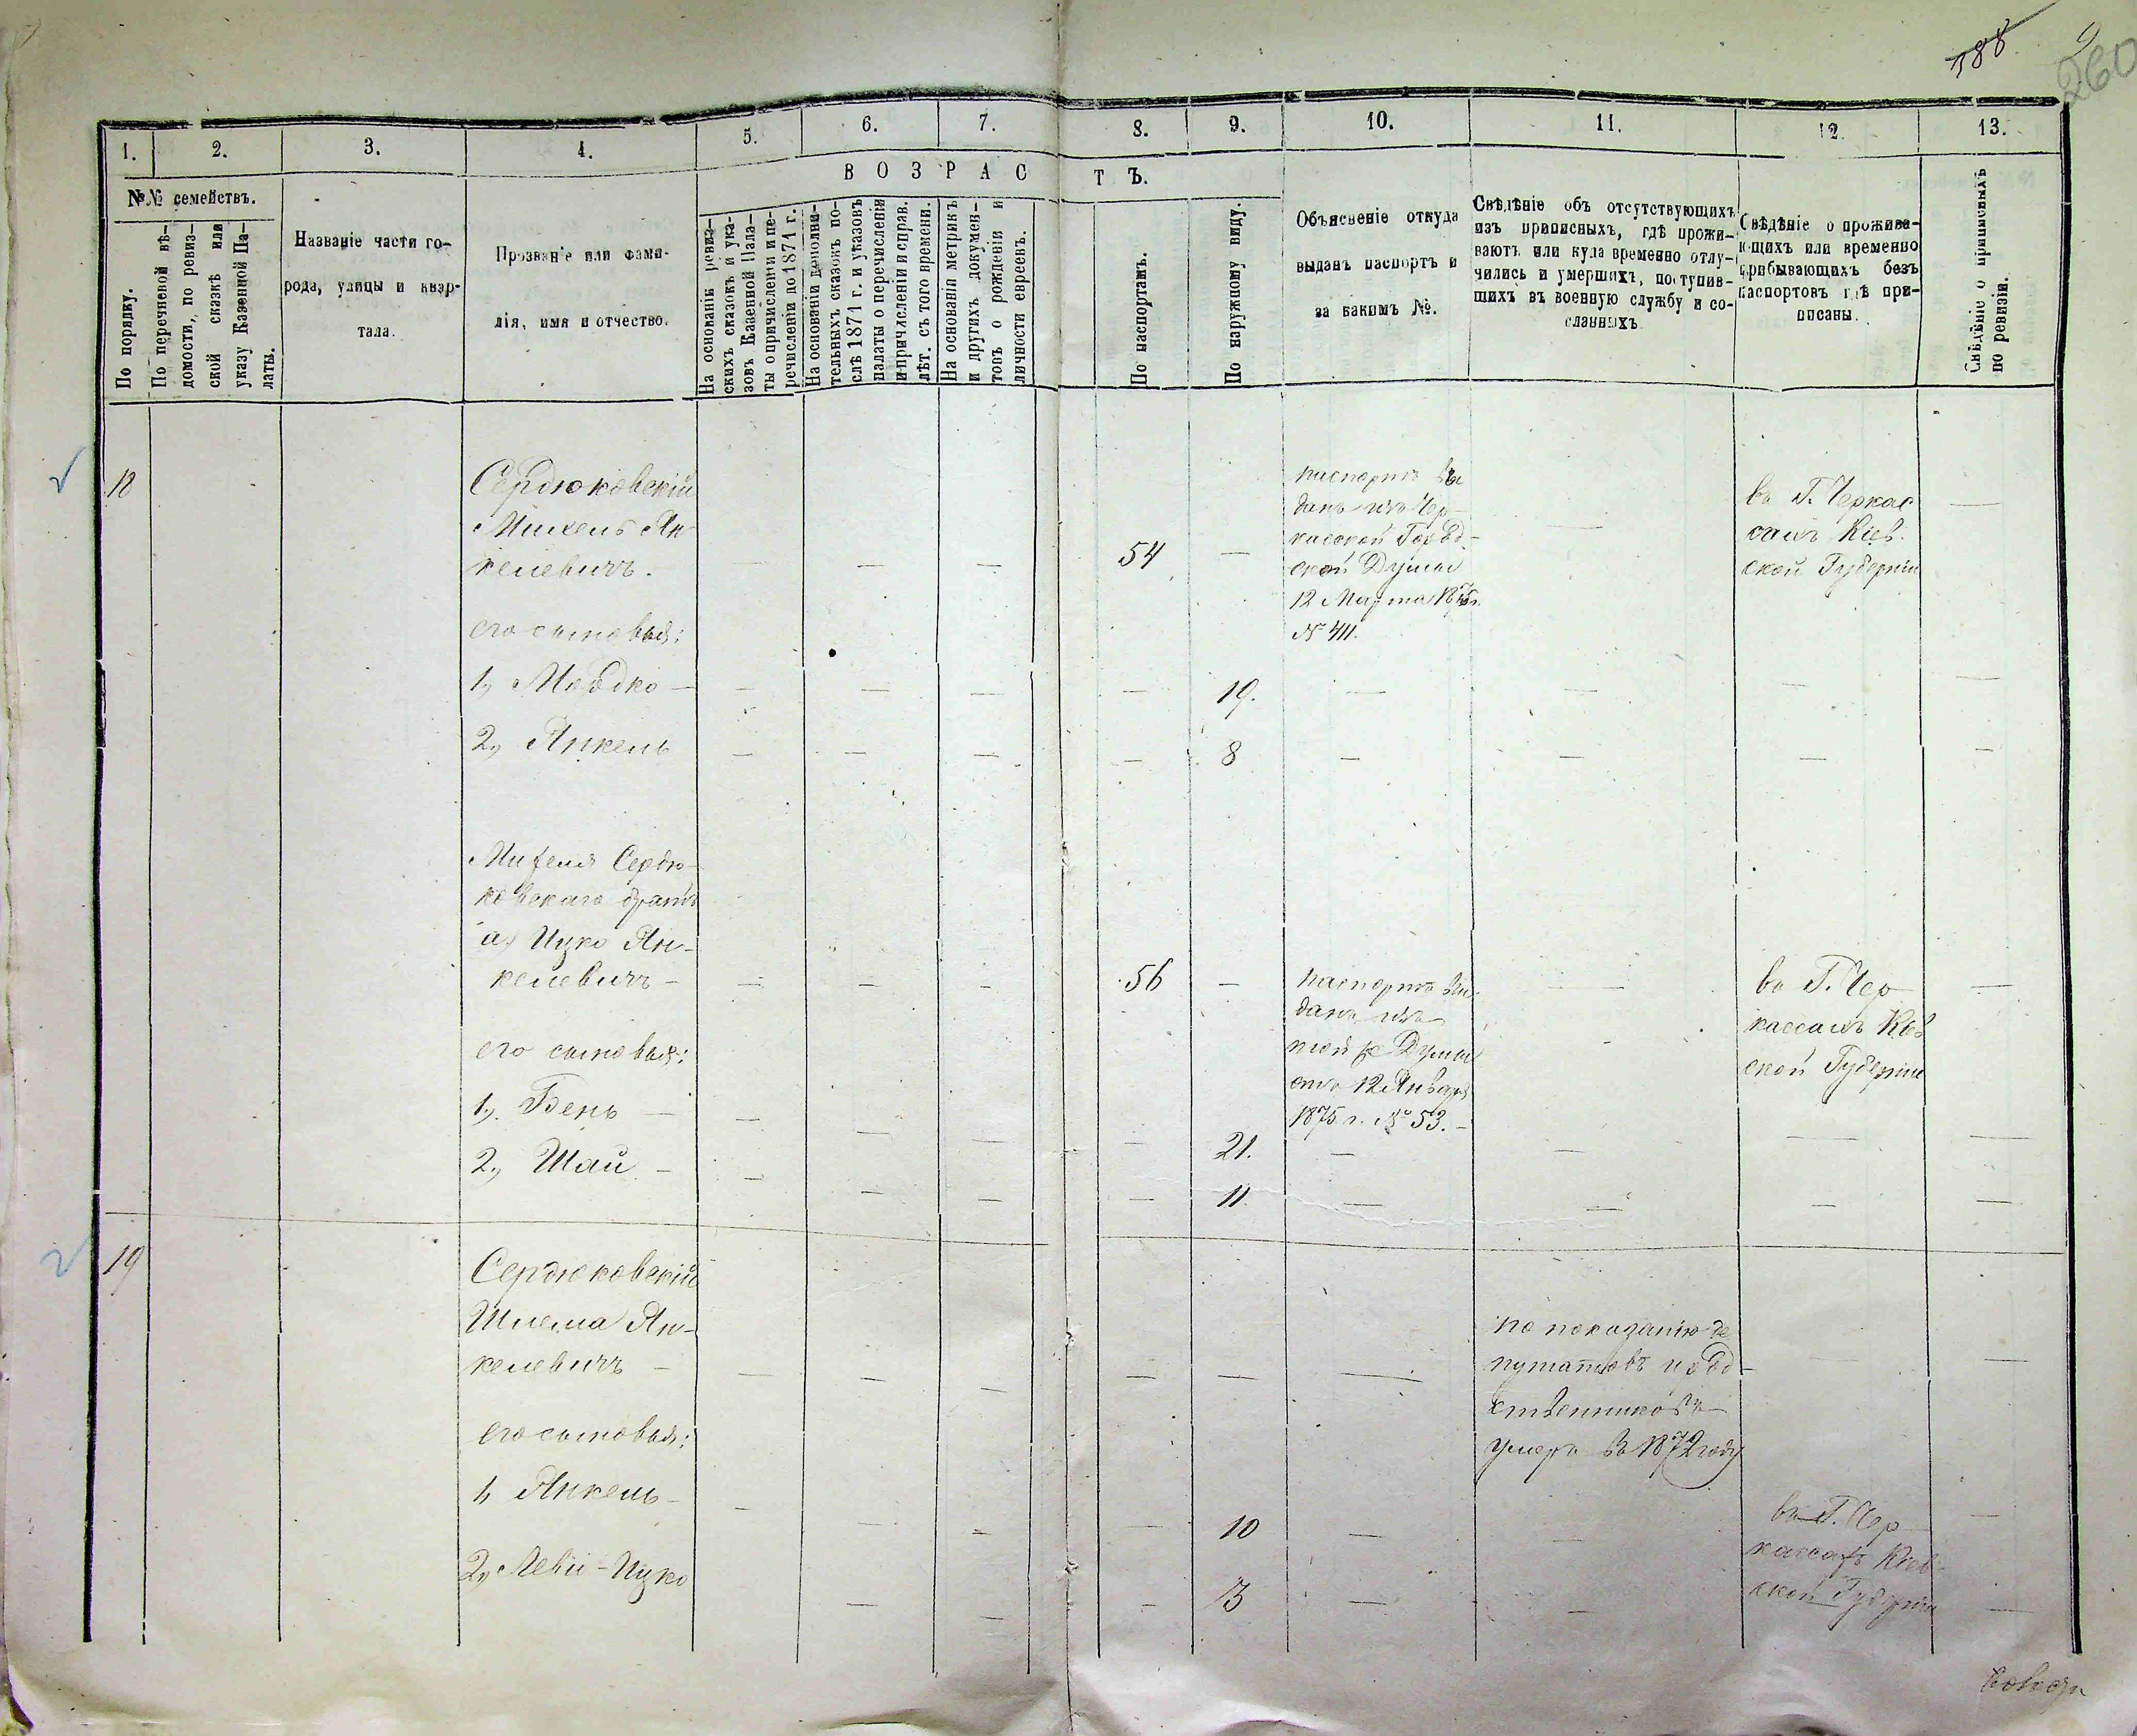 188
260
1.
2.
3.
4.
5.
6.
7.
8.
9.
10.
11.
12.
13.
ВОЗРАСТЪ.
№№ семействъ.
По порядку.
По перечневой вѣ-
домости, по ревиз-
ской сказкѣ или
указу Казенной Па-
латы.
Названіе части го-
рода, улицы и квар-
тала.
Прозваніе или фами-
лія, имя и отчество.
На основаніи ревиз-
скихъ сказокъ и ука-
зовъ Казенной Пала-
ты о причисленіи и пе-
речисленіи до 1871 г.
На основаніи дополни-
тельныхъ сказокъ по-
слѣ 1871 г. и указовъ
палаты о перечисленіи
и причисленіи и справ.
лѣт. съ того времени.
На основаніи метрикъ
и другихъ докумен-
товъ о рожденіи и
личности евреевъ.
По паспортамъ.
По наружному виду.
Объясненіе откуда
выданъ паспортъ и
за какимъ №.
Свѣдѣніе объ отсутствующихъ
изъ приписныхъ, гдѣ прожи-
ваютъ или куда временно отлу-
чились и умершихъ, поступив-
шихъ въ военную службу и со-
сланныхъ
Свѣдѣніе о прожива-
ющихъ или временно
прибывающихъ безъ
паспортовъ гдѣ при-
писаны.
Свѣдѣніе о приписныхъ
по ревизіи.
18
Сердюковскій
Михель Ян-
келевичъ.
54
паспортъ вы
данъ изъ Чер-
касской Город-
ской Думы
12 Марта 1875 г.
№ 411.
въ Г. Черкас
сахъ Кіев-
ской Губерніи
его сыновья:
1, Мордко
19.
2, Янкель
8
Михеля Сердю-
ковскаго братъ
а, Ицко Ян-
келевичъ
56
паспортъ вы-
данъ изъ
той же Думы
отъ 12 Января
1875 г. № 53.
въ Г. Чер
кассахъ Кіев
ской Губерніи
его сыновья:
1, Бень
21.
2, Шая
11
19
Сердюковскій
Шлема Ян-
келевичъ
по показанію де
путатовъ и род-
ственниковъ
умеръ въ 1872 году
его сыновья:
1, Янкель
10
въ Г. Чер
кассахъ Кіев-
ской Губерніи
2, Леви-Ицко
3